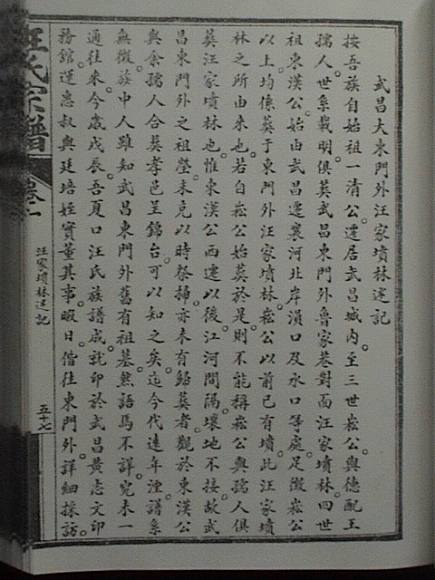 武昌大東門外汪家墳林述記
按吾族自始祖一清公遷居武昌城內至三世崧公與德配王
孺人世系載明俱葬武昌東門外魯家巷對面汪家墳林四世
祖東漢公始由武昌遷襄河北岸溳口及水口等處足徵崧公
以上均係葬于東門外汪家墳林崧公以前已有墳此汪家墳
林之所由來也若自崧公始葬於是則不能稱崧公與孺人俱
葬汪家墳林也惟東漢公西遷以後江河間隔壤地不接故武
昌東門外之祖塋未克以時祭掃亦未有歸葬者觀於東漢公
與余孺人合葬孝邑呈錦台可以知之矣迄今代遠年湮譜系
無徵族中人雖知武昌東門外舊有祖墓然語焉不詳究未一
通往來今歲戊辰吾夏口汪氏族譜成就印於武昌黃志文印
務館運惠叔與廷培姪實董其事暇日偕往東門外詳細採訪
汪氏宗譜
卷一
汪家墳林述記
五十七